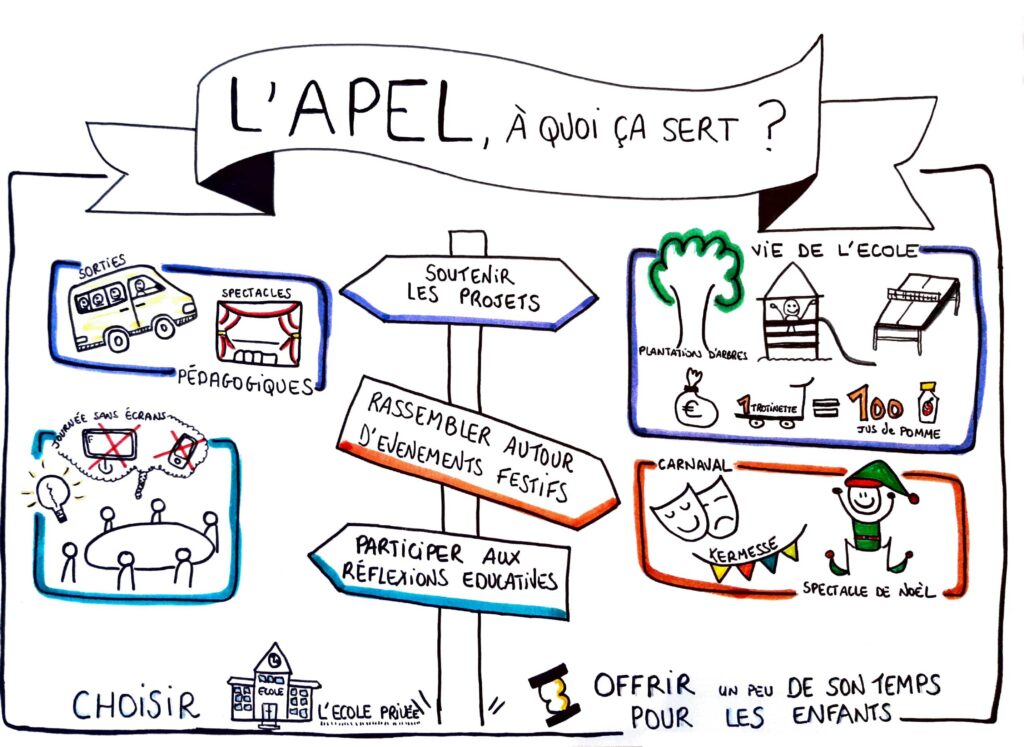 L'APEL, À QUOI ÇA SERT ?
SORTIES
SPECTACLES
PÉDAGOGIQUES
SOUTENIR
LES PROJETS
VIE DE L'ECOLE
PLANTATION D'ARBRES
€
1 TROTINETTE = 100
JUS de POMME
JOURNÉE SANS ÉCRANS
RASSEMBLER AUTOUR
D'EVENEMENTS FESTIFS
CARNAVAL
KERMESSE
SPECTACLE DE NOËL
PARTICIPER AUX
RÉFLEXIONS EDUCATIVES
CHOISIR
ECOLE
L'ECOLE PRIVÉE
OFFRIR UN PEU DE SON TEMPS
POUR LES ENFANTS